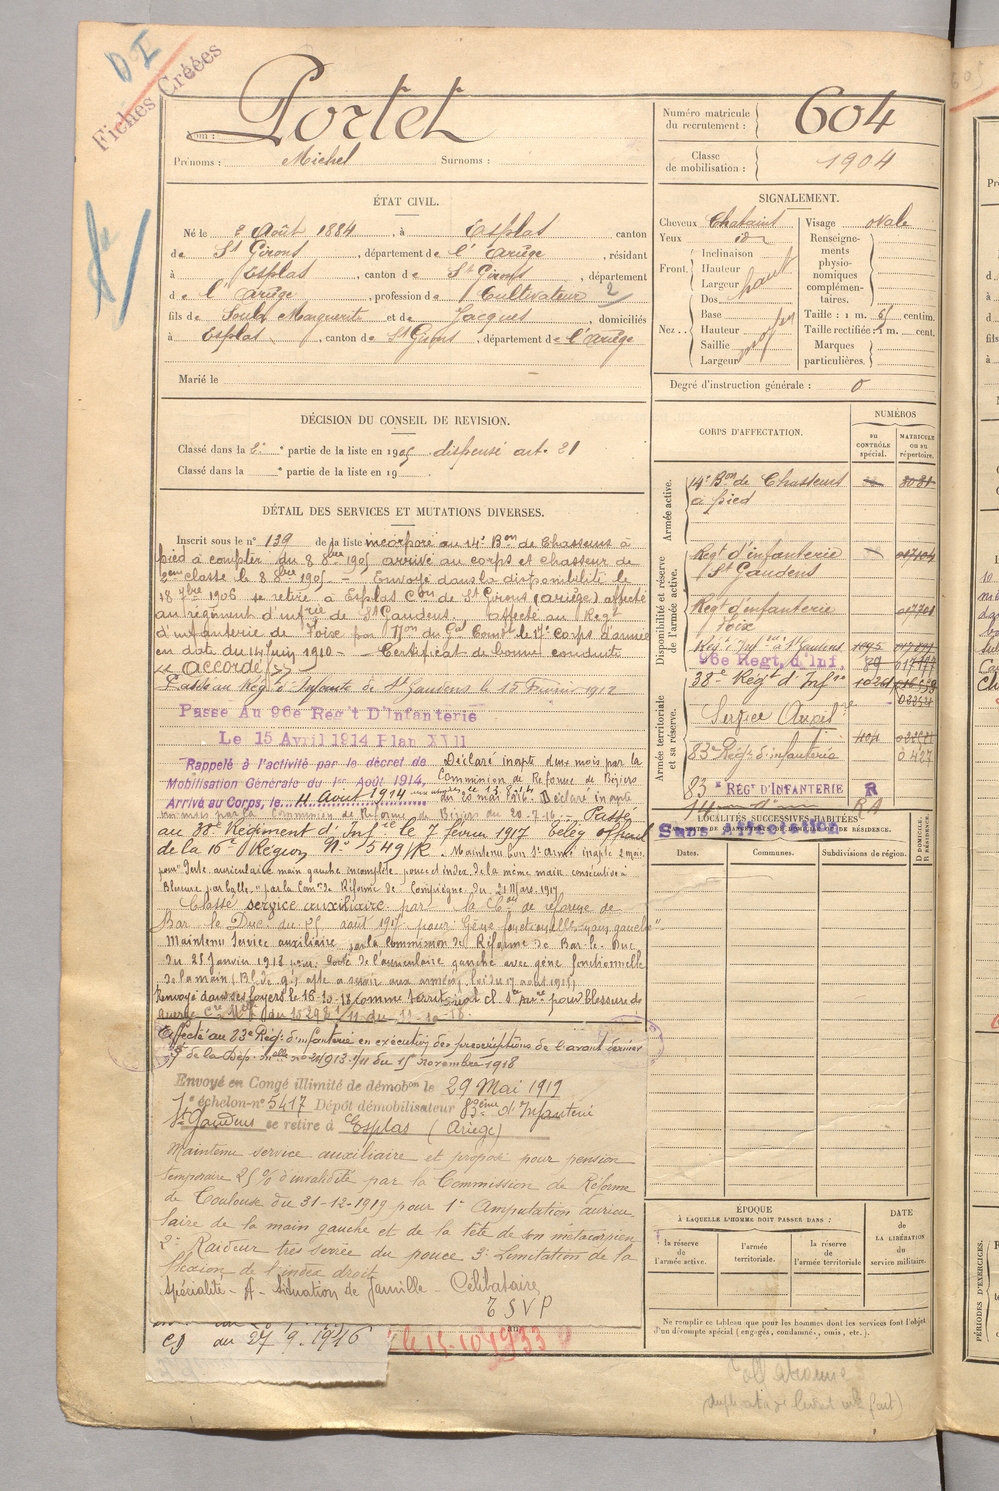 D I
Fiches Créées
Nom : Portet
Prénoms : Michel Surnoms :
Numéro matricule du recrutement : 604
Classe de mobilisation : 1904
ÉTAT CIVIL.
Né le 2 Août 1884, à Esplas canton
de St Girons, département de l'Ariège, résidant
à Esplas, canton de St Girons, département
de l'Ariège, profession de Cultivateur 2
fils de Soula Marguerite et de Jacques, domiciliés
à Esplas, canton de St Girons, département de l'Ariège
Marié le
SIGNALEMENT.
Cheveux Chatains Visage ovale
Yeux
Front. Inclinaison Hauteur Largeur haut
Renseignements physionomiques complémentaires.
Nez.. Dos Base Hauteur Saillie Largeur moyen
Taille : 1 m. 61 centim.
Taille rectifiée 1 m. cent.
Marques particulières.
Degré d'instruction générale : 0
DÉCISION DU CONSEIL DE REVISION.
Classé dans la 2e partie de la liste en 1905. dispensé art. 21
Classé dans la partie de la liste en 19
DÉTAIL DES SERVICES ET MUTATIONS DIVERSES.
Inscrit sous le n° 139 de la liste incorporé au 14e Bon de Chasseurs à
pied à compter du 8 8bre 1905 arrivé au corps et chasseur de
2eme classe le 8 8bre 1905 - Envoyé dans la disponibilité le
18 7bre 1906 se retire à Esplas Con de St Girons (Ariège) affecté
au régiment d'infrie de St Gaudens. affecté au Regt
d'infanterie de Foix par Non du Gal Comdt le 17e corps d'armée
en date du 14 Juin 1910 - Certificat de bonne conduite
"Accordé"
Passé au Régt d'Infanterie de St Gaudens le 15 Février 1912
Passe Au 96e Reg't D'Infanterie
Le 15 Avril 1914 Plan XVII
Rappelé à l'activité par le décret de
Mobilisation Générale du 1er Août 1914,
Arrivé au Corps, le 11 Août 1914
Déclaré inapte deux mois par la
Commission de Réforme de Béziers
du 20 mai 1916. Déclaré inapte
par la Commission de Réforme de Béziers du 20-7-16 - Passé
au 38e Régiment d'Infrie le 7 février 1917 Teleg officiel
de la 16e Région N° 549/R. Maintenu bon St Armé inapte 2 mois
pour "Perte auriculaire main gauche incomplète pouce et index de la même main consécutive à
Blessure par balle" par la Comon de Réforme de Compiègne du 21 Mars 1917
Classé service auxiliaire par la Con de réforme de
Bar le Duc du 25 août 1917 pour "Gêne fonctionnelle main gauche"
Maintenu Service auxiliaire par la Commission de Réforme de Bar-le-Duc
du 28 Janvier 1918 pour: perte de l'auriculaire gauche avec gêne fonctionnelle
de la main (Bl. de g.) apte à servir aux armées, loi du 17 août 1915
Renvoyé dans ses foyers le 16-10-18 comme
Affecté au 83e Régt d'infanterie en exécution des prescriptions de l'avant dernier
§ de la Dép. melle no 21913 1/11 du 15 novembre 1918
Envoyé en Congé illimité de démobon le 29 Mai 1919
7e échelon-n° 5417 Dépôt démobilisateur 83ème d'Infanterie
St Gaudens se retire à Esplas (Ariège)
Maintenu service auxiliaire et proposé pour pension
temporaire 25 % d'invalidité par la Commission de Réforme
de Toulouse du 31-12-1919 pour 1° Amputation auricu
laire de la main gauche et de la tête de son métacarpien
2° Raideur très serrée du pouce 3° Limitation de la
flexion de l'index droit
Spécialité - A - Situation de famille - Célibataire
T S V P
du 27.9.1916
le 15-10 1933
CORPS D'AFFECTATION.
NUMÉROS
au CONTRÔLE spécial.
MATRICULE ou au répertoire.
Armée active.
14e Bon de Chasseurs à pied
Disponibilité et réserve de l'armée active.
Regt d'infanterie St Gaudens
Regt d'infanterie Foix
Régt d'Inf à St Gaudens
96e Regt, d'Inf,
38e Régt d'Infie
Armée territoriale et sa réserve.
Service Auxilre
83e Régt d'infanterie
83e RÉGt D'INFANTERIE R
RA
Sans Affectation
LOCALITÉS SUCCESSIVES HABITÉES
Dates. Communes. Subdivisions de région.
D DOMICILE. R RÉSIDENCE.
ÉPOQUE
À LAQUELLE L'HOMME DOIT PASSER DANS :
la réserve de l'armée active.
l'armée territoriale.
la réserve de l'armée territoriale
DATE de LA LIBÉRATION du service militaire.
Ne remplir ce tableau que pour les hommes dont les services font l'objet
d'un décompte spécial (engagés, condamnés, omis, etc.).
PÉRIODES D'EXERCICES.